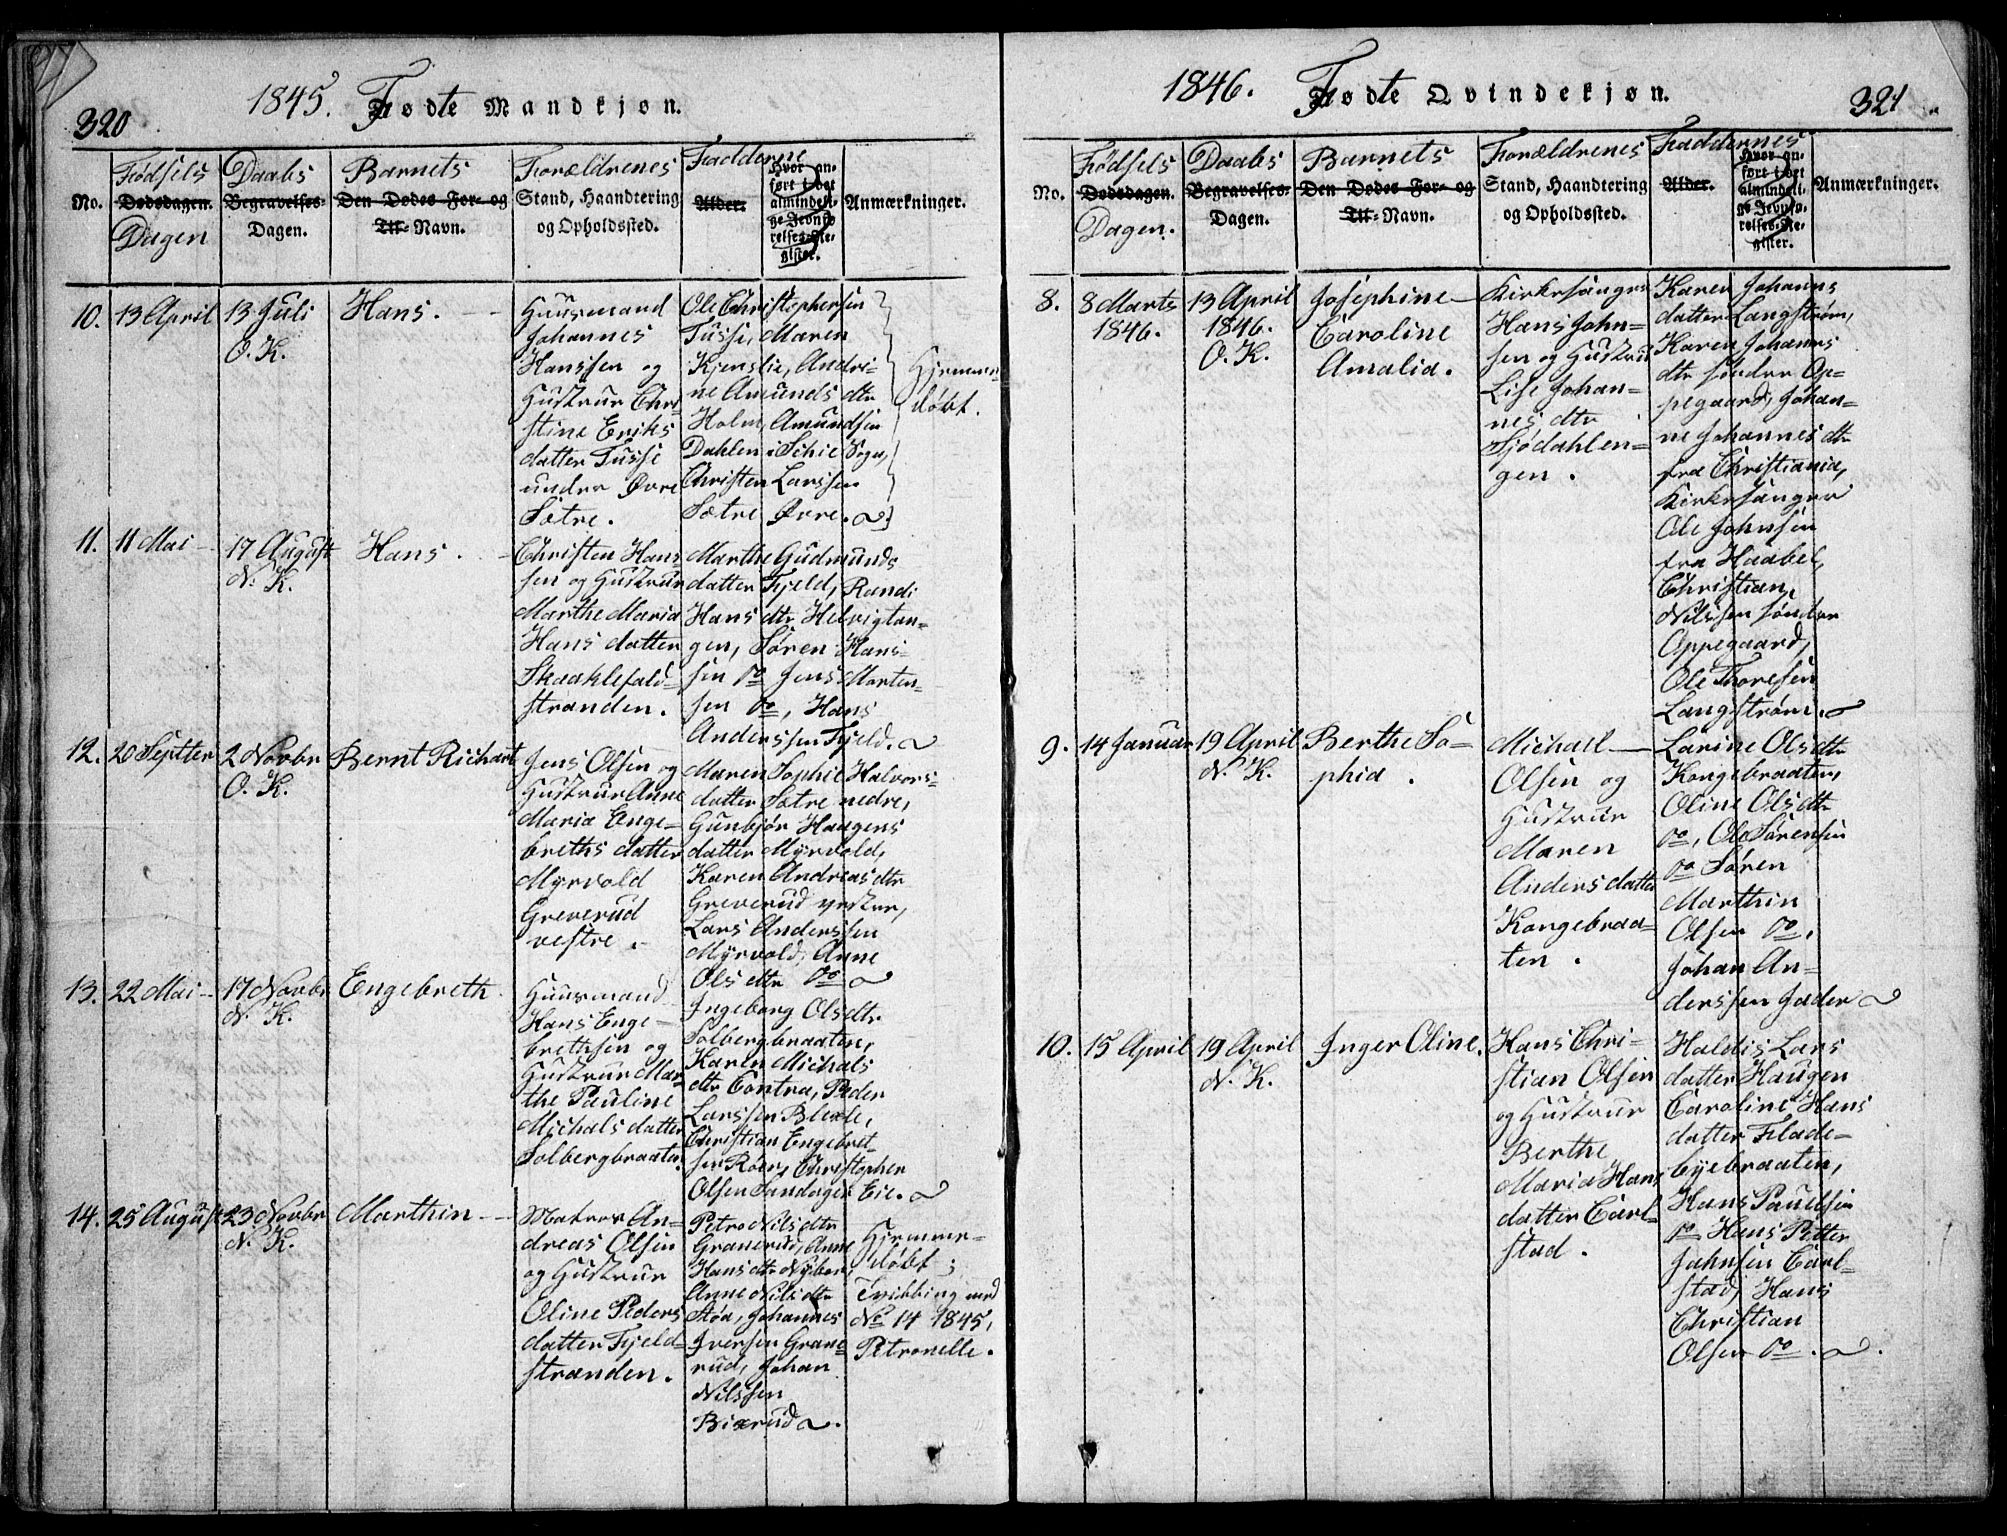 320
1845. Fødte Mandkjøn.
No.
Fødsels
Dødsdagen.
Dagen
Daabs
Begravelses-
Dagen.
Barnets
Den Dødes For- og
Til-Navn.
Forældrenes
Stand, Haandtering
og Opholdssted.
Fadderne
Alder.
Hvor an-
ført i det
almindeli-
ge Jevnfø-
relses-Re-
gister.
Anmærkninger.
10.
13 April
13 Juli
O. K.
Hans.
Huusmand
Johannes
Hanssen og
Hustrue Chri-
stine Eriks
datter Tusse
under Øvre
Sætre.
Ole Christophersen
Tusse, Maren
Kjenslie, Andri-
ne Amunds dtr
Holm, Amundsen
Dahlen i Schie Sogn,
Christen Larssen
Sætre Øvre.
Hjemme-
døbt.
11.
11 Mai
17 August
N. K.
Hans.
Christen Hans-
sen og Hustrue
Marthe Maria
Hans datter
Skaahlefald-
stranden.
Marthe Gudmunds
datter Fjeld, Randi
Hans dtr Helvigtan-
gen, Søren Hans-
sen do Jens Morten-
sen do, Hans
Anderssen Fjeld.
12.
20 Septter
2 Novbr
O. K.
Bernt Richart
Jens Olsen og
Hustrue Anne
Maria Enge-
breths datter
Myrvold
Greverud
vestre.
Maren Sophie Halvors-
datter Sætre nedre,
Gunbjør Haagens
datter Myrvold,
Karen Andreas dtr
Greverud vestre,
Lars Anderssen
Myrvold, Anne
Ols dtr do
13.
22 Mai
17 Novbr
N. K.
Engebreth
Huusmand
Hans Enge-
brethsen og
Hustrue Mar-
the Pauline
Michals datter
Solbergbraaten
Ingeborg Ols dtr
Solbergbraaten,
Karen Michals
dtr Contra, Peder
Larssen Blexle,
Christian Engebret-
sen Røer, Christopher
Olsen Sundager Eie.
14.
25 August
23 Novbr
N. K.
Marthin
Matros An-
dreas Olsen
og Hustrue
Oline Peders
datter Fjeld-
stranden.
Petro Nils dtr
Granerud, Anne
Hans dtr Nyber,
Anne Nils dtr
Støa, Johannes
Iversen Grane-
rud, Johan
Nilssen
Bixrud.
Hjemme-
døbt;
Tvilling med
No 14 1845,
Petronelle.
1846. Fødte Qvindekjøn.
321
No.
Fødsels
Dødsdagen.
Dagen.
Daabs
Begravelses-
Dagen.
Barnets
Den Dødes For- og
Til-Navn.
Forældrenes
Stand, Haandtering
og Opholdssted.
Faddernes
Alder.
Hvor an-
ført i det
almindeli-
ge Jevnfø-
relses-Re-
gister.
Anmærkninger.
8.
8 Marts
1846.
13 April
1846.
O. K.
Josephine
Caroline
Amalia.
Kirkesanger
Hans John-
sen og Hustrue
Lise Johan-
nes dtr
Sjødahlen-
gen.
Karen Johanns
datter Langstrøm,
Karen Johannes
dtr søndre Op-
pegaard, Johan-
ne Johannes dtr
fra Christiania,
Kirkesanger
Ole Johnsen
fra Haabel,
Christian
Nilssen søndre
Oppegaard,
Ole Thoresen
Langstrøm.
9.
14 Januar
19 April
N. K.
Berthe So-
phia.
Michael
Olsen og
Hustrue
Maren
Anders datter
Kongebraa-
ten.
Larine Ols dtr
Kongebraaten,
Oline Ols dtr
do, Ole Sørensen
do Søren
Marthin
Olsen do,
Johan An-
derssen Jader
10.
15 April
19 April
N. K.
Inger Oline.
Hans Chri-
stian Olsen
og Hustrue
Berthe
Maria Hans
datter Carl-
stad.
Haldis Lars
datter Haugen
Caroline Hans
datter Flade-
byebraaten,
Hans Paulsen
do Hans Petter
Johnsen Carl-
stad, Hans
Christian
Olsen do.